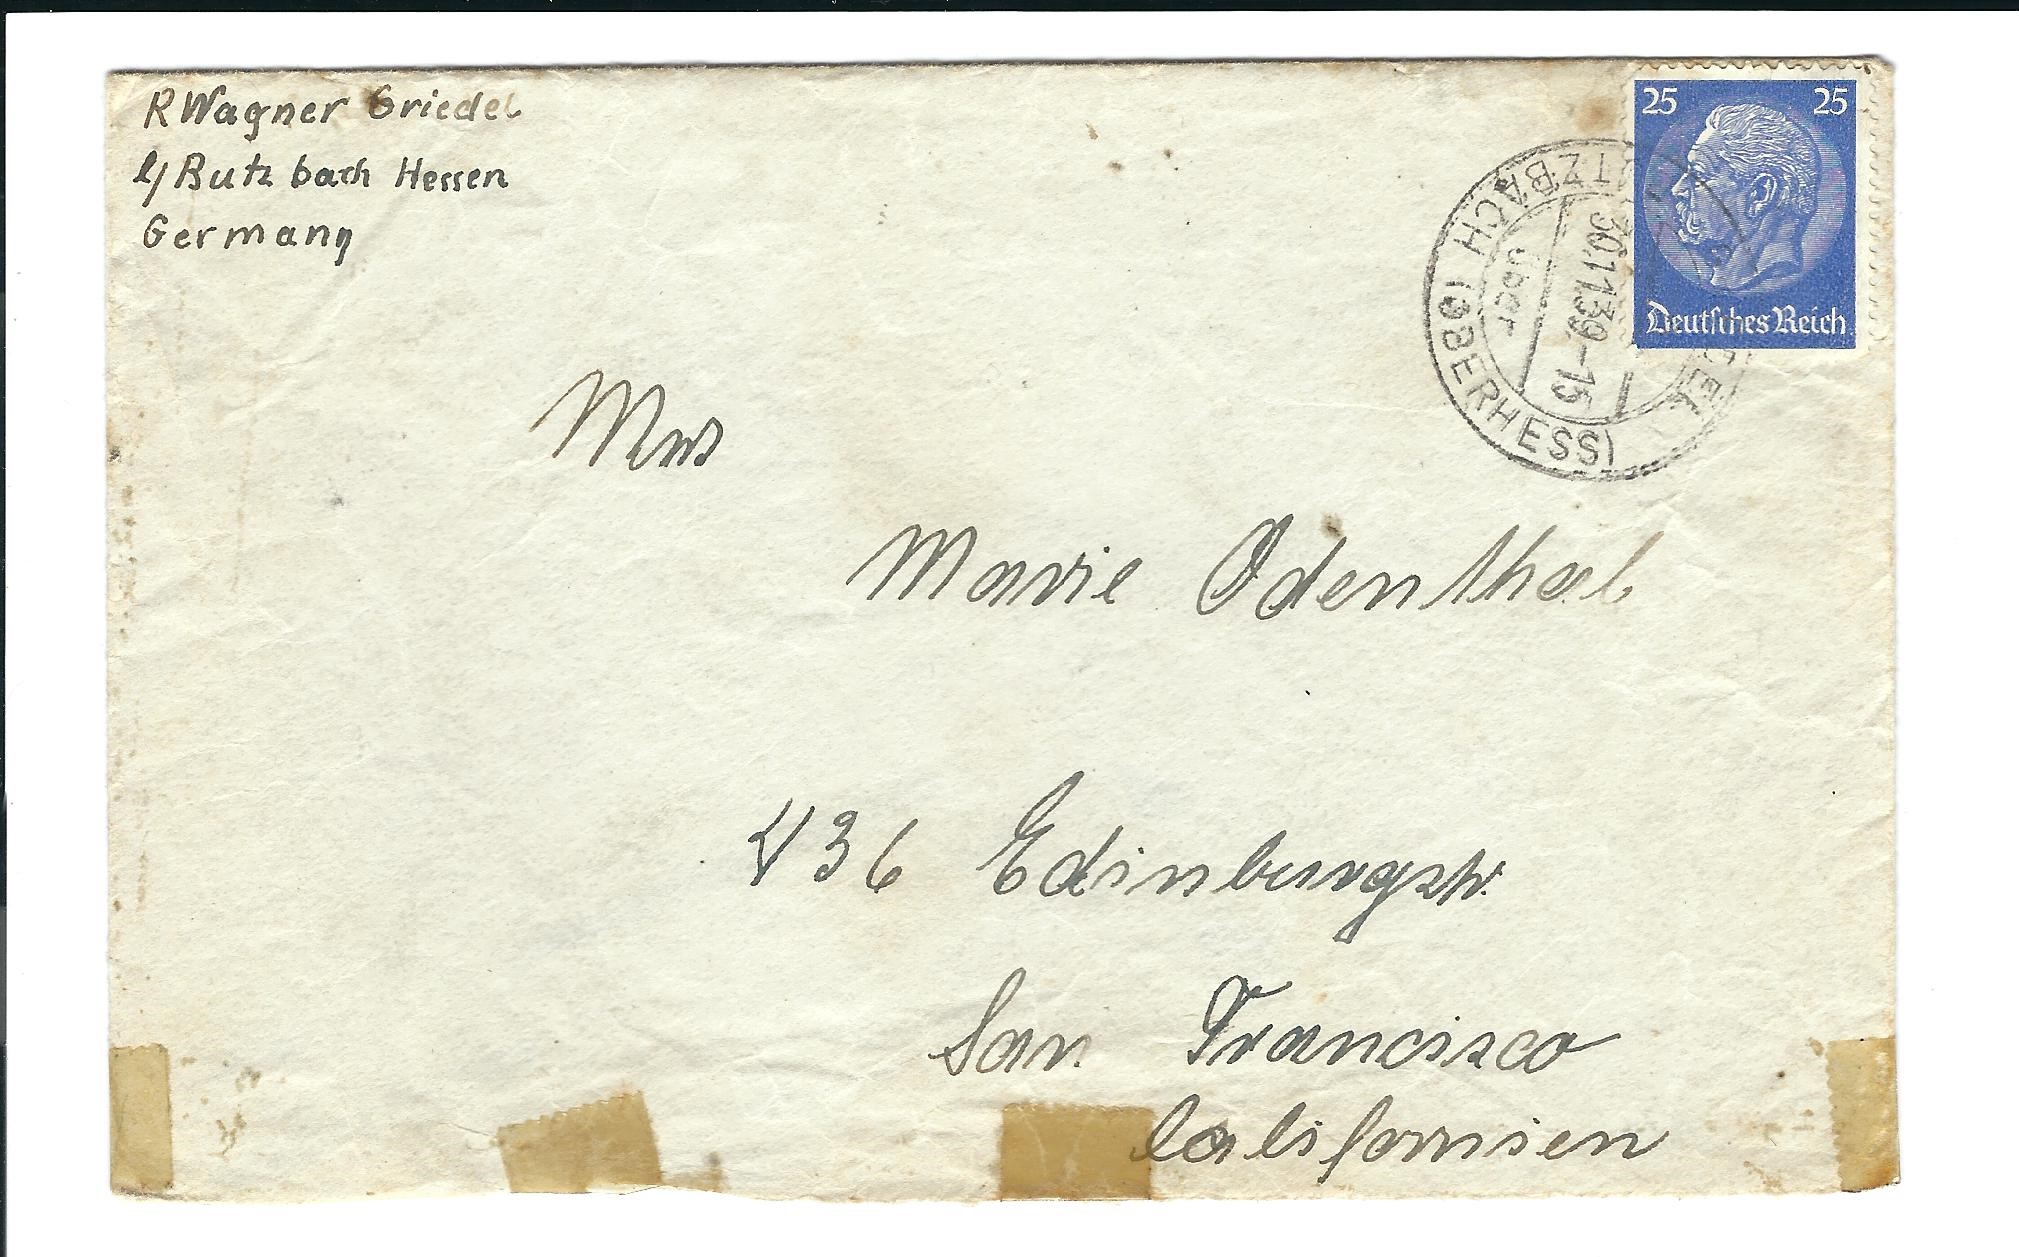 R Wagner Griedel
b/ Butzbach Hessen
Germany
25 25
Deutsches Reich
BUTZBACH (OBERHESS)
über
30.11.39.-15
Mrs
Marie Odenthal
436 Edinburgstr.
San Francisco
Californien